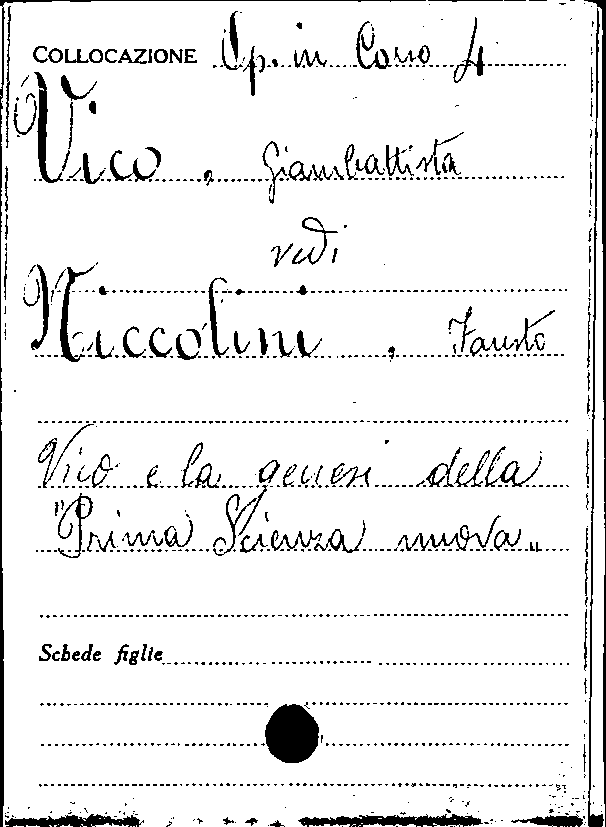 COLLOCAZIONE Op. in Corso 4
Vico, Giambattista
vedi
Niccolini, Fausto
Vico e la genesi della
"Prima Scienza nuova"
Schede figlie